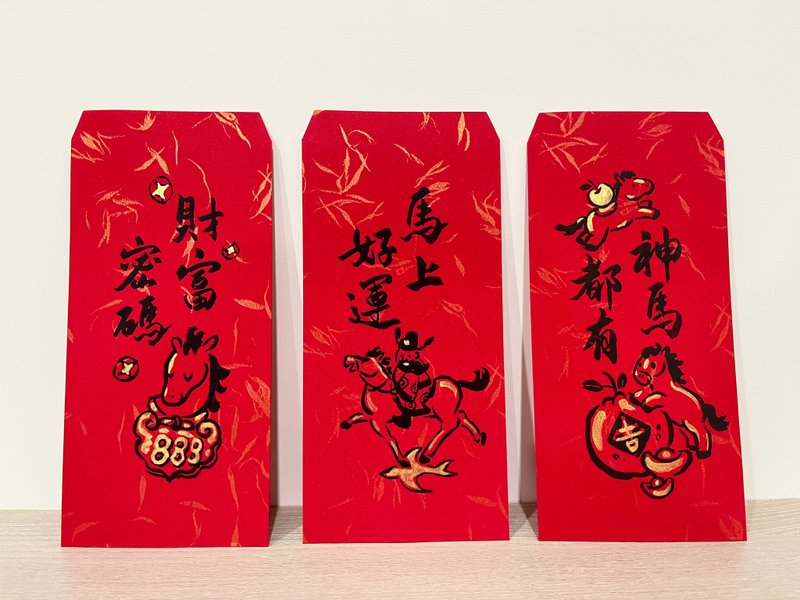 財富
密碼
888
馬上
好運
神馬
都有
吉